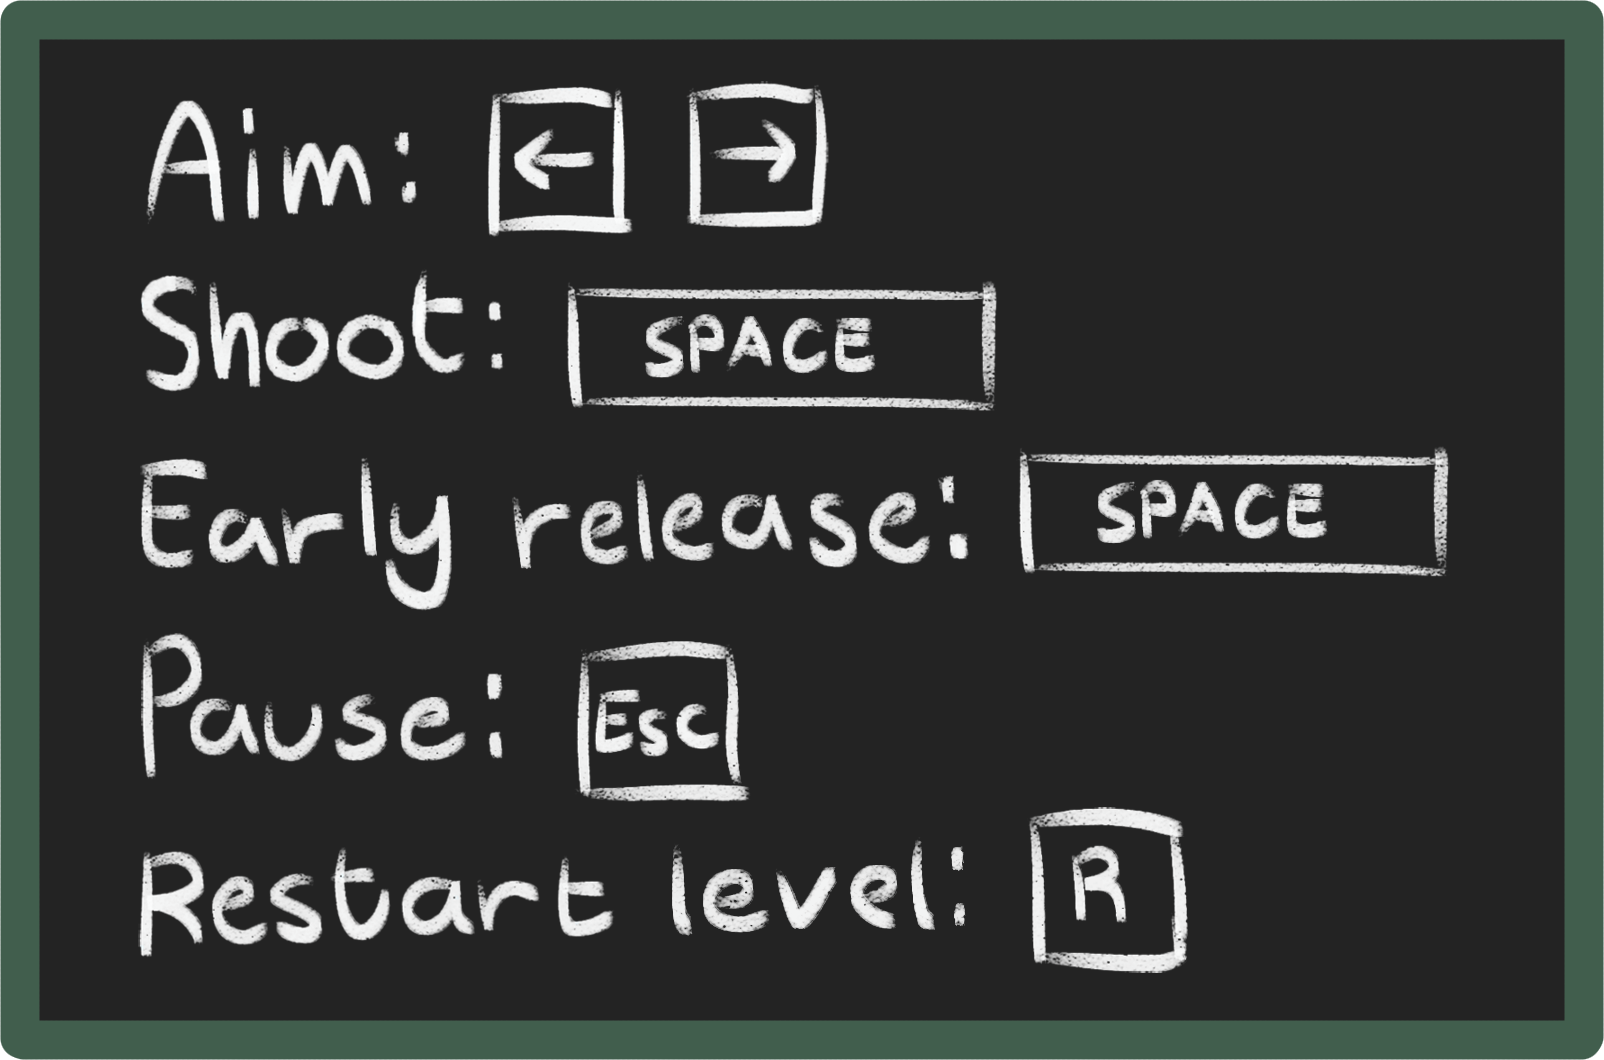 Aim: ← →
Shoot: SPACE
Early release: SPACE
Pause: Esc
Restart level: R